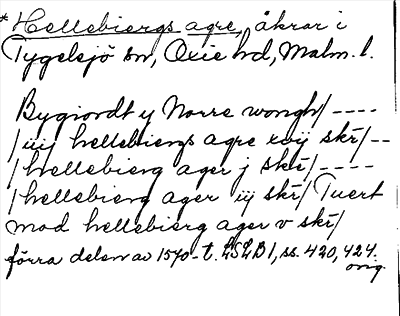 * Hellebiergs agre, åkrar i
Tygelsjö sn, Oxie hd, Malm. l.
Bygiordt y Norre wongh/ ----
/ iiij hellebiergs agre xvij skr/ --
/ hellebierg ager j skr/ ----
/ hellebierg ager iij skr/ Tuert
mod hellebierg ager v skr/
förra delen av 1570-t. LSLB 1, ss. 420, 424.
orig.